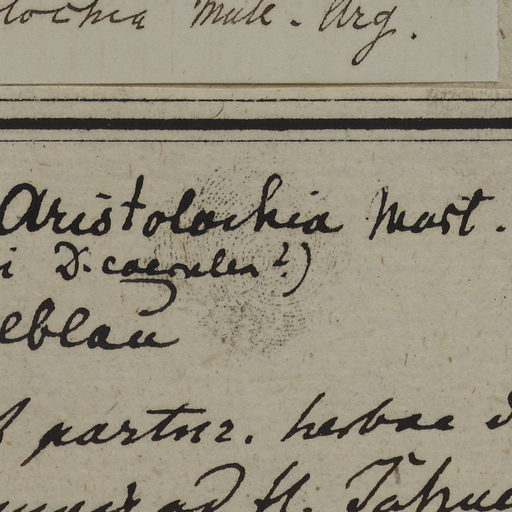 lochia Mull. Arg.
Aristolochia Mart.
i D. caerulea?)
elblau
partur. herbae
ad fl. Tapu